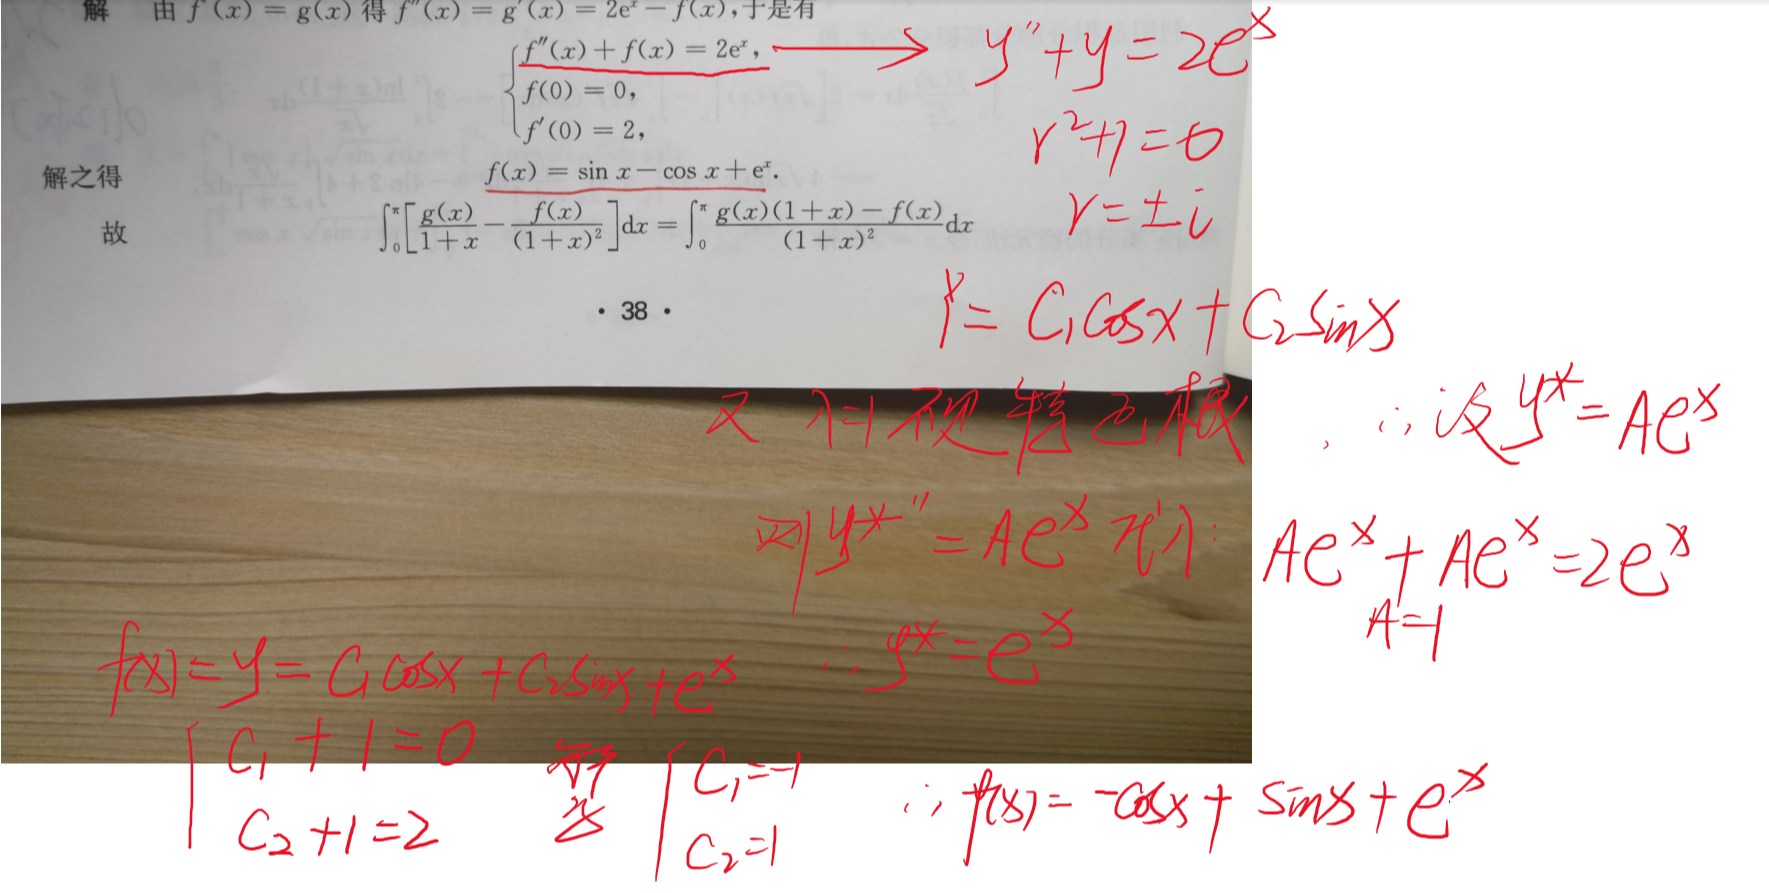 解 由 f′(x) = g(x) 得 f″(x) = g′(x) = 2eˣ − f(x),于是有
f″(x) + f(x) = 2eˣ, → y″ + y = 2eˣ
f(0) = 0,
f′(0) = 2,
r² + 1 = 0
解之得 f(x) = sin x − cos x + eˣ.
r = ± i
故 ∫₀^π [g(x)/(1+x) − f(x)/(1+x)²]dx = ∫₀^π g(x)(1+x) − f(x)/(1+x)² dx
· 38 ·
Y = C₁cosx + C₂sinx
又 λ=1 不是 特征根, ∴设 y* = Aeˣ
则 y*″ = Aeˣ 代入: Aeˣ + Aeˣ = 2eˣ
A = 1
∴ y* = eˣ
f(x) = y = C₁cosx + C₂sinx + eˣ
C₁ + 1 = 0
C₂ + 1 = 2
C₁ = −1
C₂ = 1
∴ f(x) = −cosx + sinx + eˣ